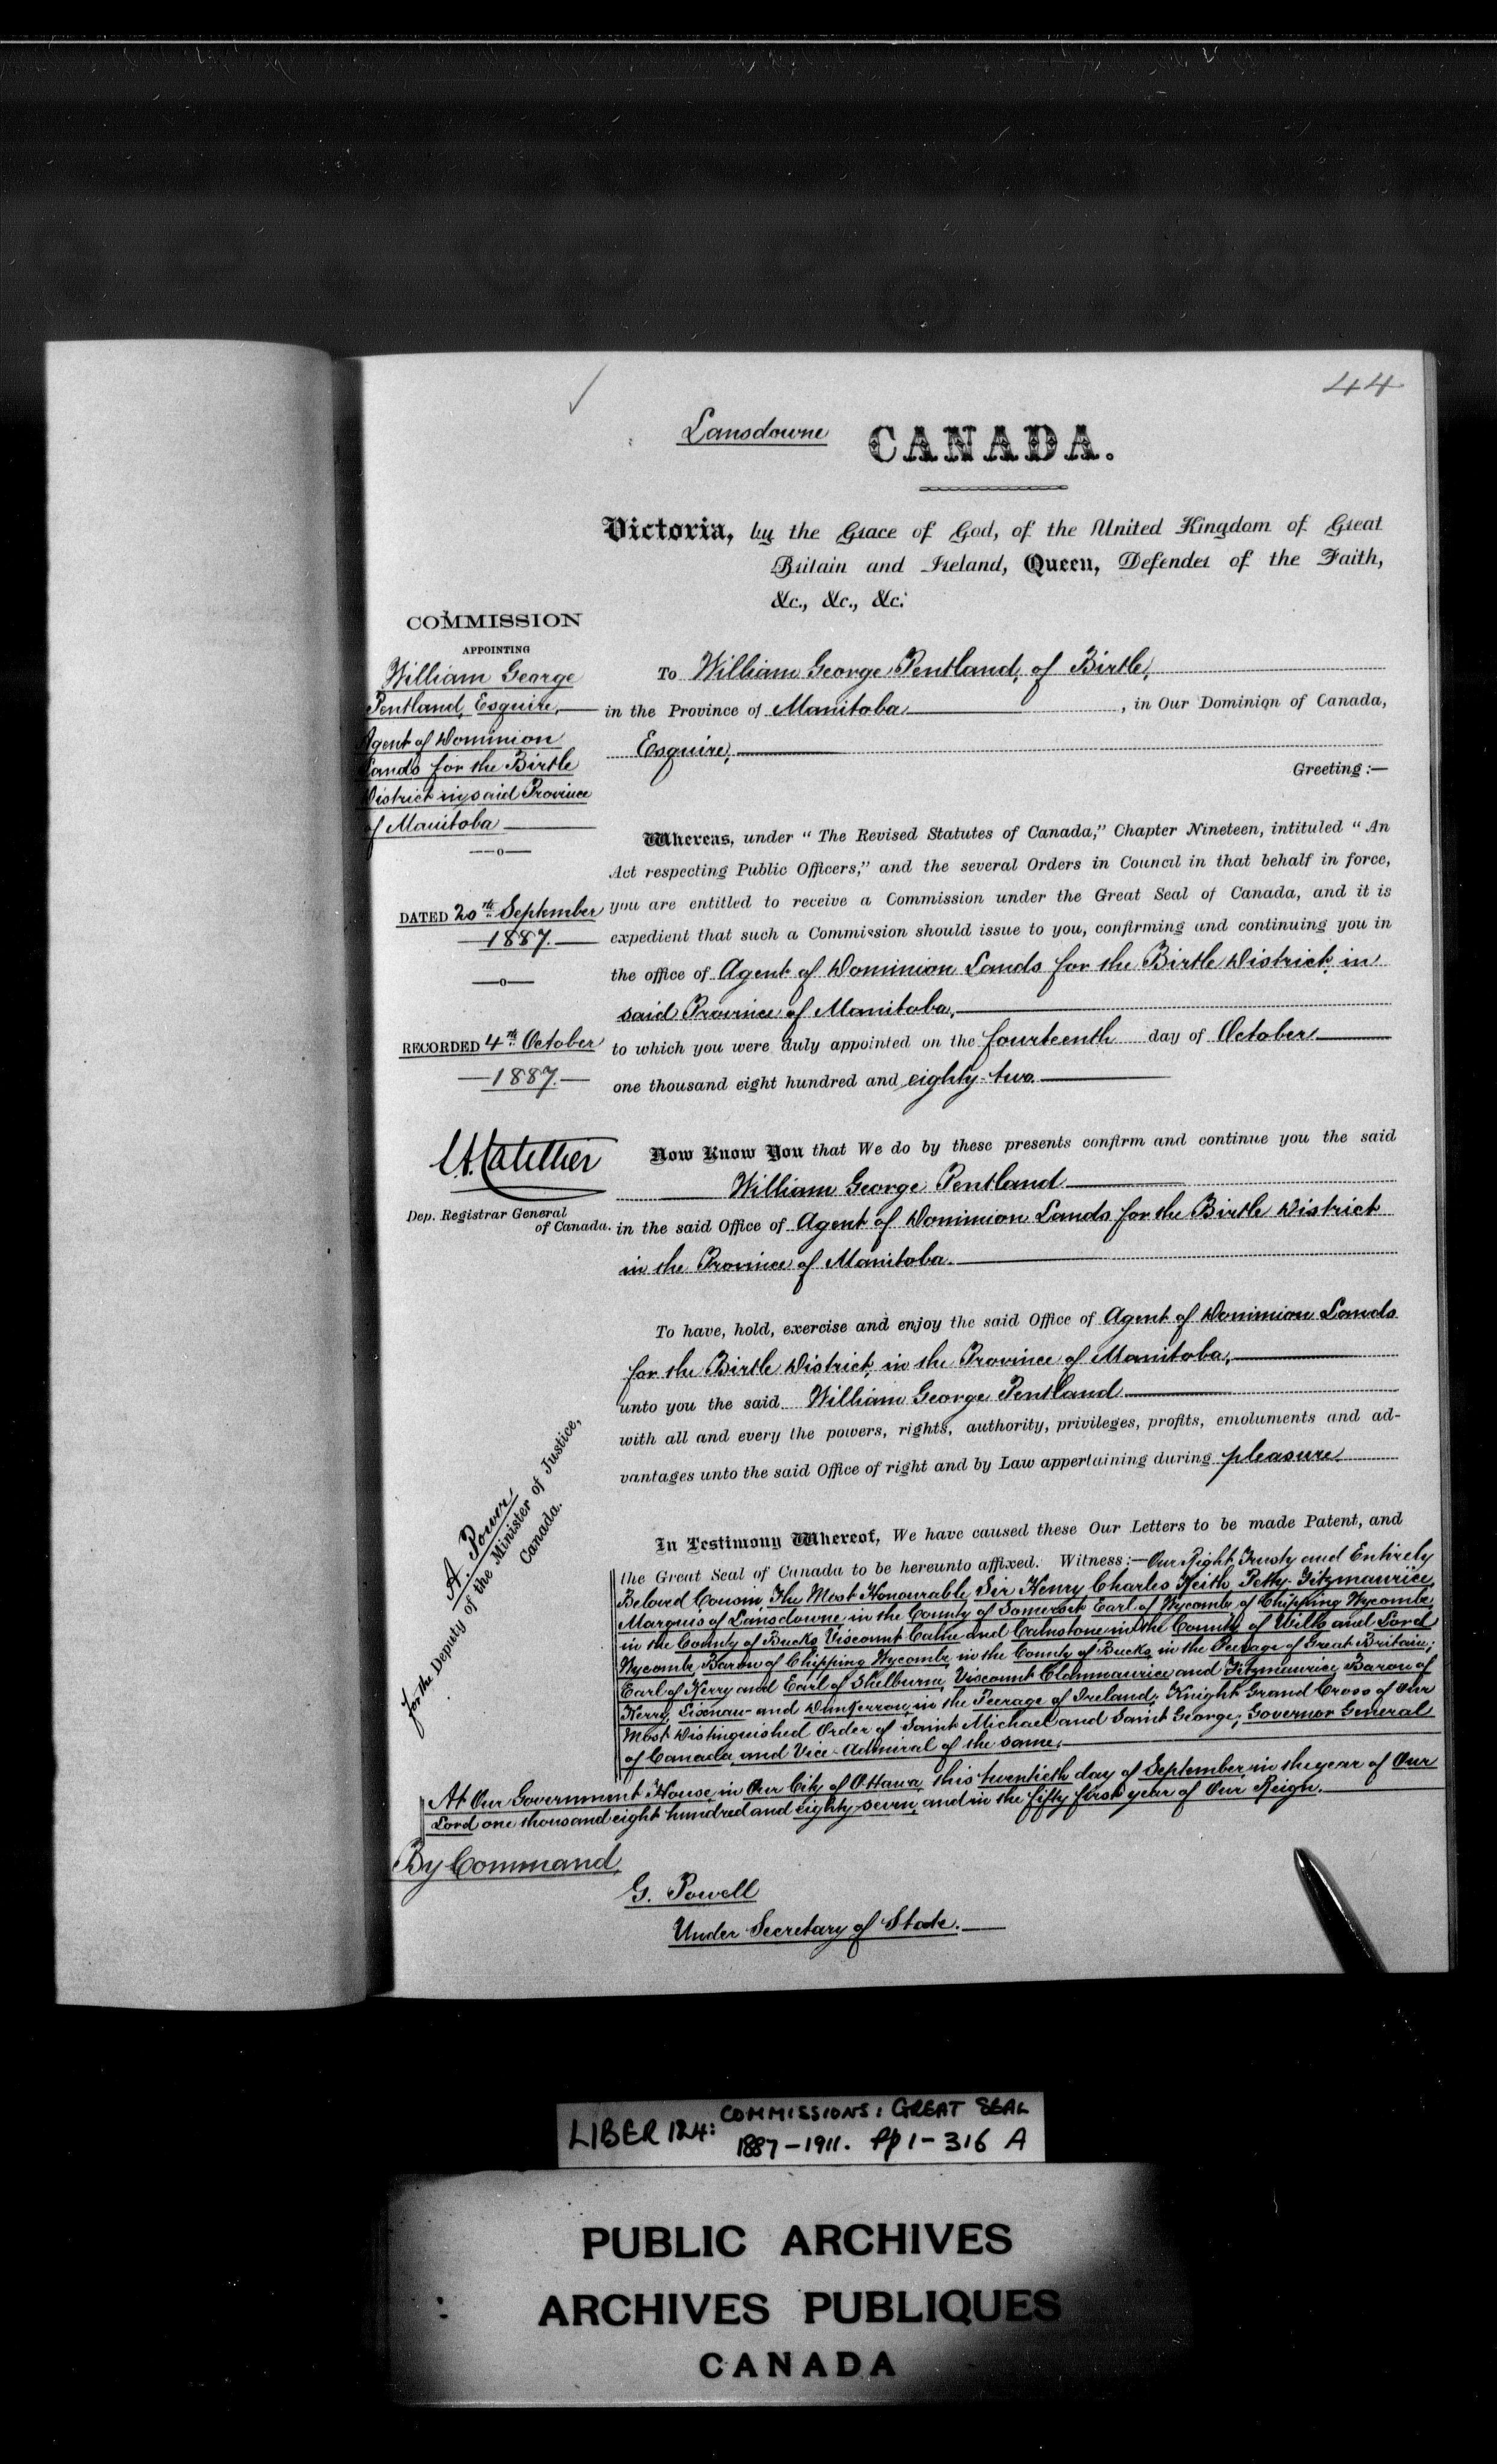 44
Lansdowne
CANADA.
Victoria, by the Grace of God, of the United Kingdom of Great
Britain and Ireland, Queen, Defender of the Faith,
&c., &c., &c.
COMMISSION
APPOINTING
William George
Pentland, Esquire,
Agent of Dominion
Lands for the Birtle
District in said Province
of Manitoba
DATED 20th September
1887.
RECORDED 4th October
1887.
Dep. Registrar General
of Canada.
A. Power
for the Deputy of the Minister of Justice,
Canada.
To William George Pentland, of Birtle,
in the Province of Manitoba, in Our Dominion of Canada,
Esquire,
Greeting:—
Whereas, under "The Revised Statutes of Canada," Chapter Nineteen, intituled "An
Act respecting Public Officers," and the several Orders in Council in that behalf in force,
you are entitled to receive a Commission under the Great Seal of Canada, and it is
expedient that such a Commission should issue to you, confirming and continuing you in
the office of Agent of Dominion Lands for the Birtle District, in
said Province of Manitoba,
to which you were duly appointed on the fourteenth day of October
one thousand eight hundred and eighty-two
Now Know You that We do by these presents confirm and continue you the said
William George Pentland
in the said Office of Agent of Dominion Lands for the Birtle District
in the Province of Manitoba.
To have, hold, exercise and enjoy the said Office of Agent of Dominion Lands
for the Birtle District, in the Province of Manitoba,
unto you the said William George Pentland
with all and every the powers, rights, authority, privileges, profits, emoluments and ad-
vantages unto the said Office of right and by Law appertaining during pleasure
In Testimony Whereof, We have caused these Our Letters to be made Patent, and
the Great Seal of Canada to be hereunto affixed. Witness:—Our Right Trusty and Entirely
Beloved Cousin, The Most Honourable Sir Henry Charles Keith Petty-Fitzmaurice,
Marquis of Lansdowne in the County of Somerset Earl of Wycombe of Chipping Wycombe,
in the County of Bucks Viscount Calne and Calnstone in the County of Wilts and Lord
Wycombe, Baron of Chipping Wycombe in the County of Bucks in the Peerage of Great Britain;
Earl of Kerry and Earl of Shelburne, Viscount Clanmaurice and Fitzmaurice, Baron of
Kerry, Lixnaw and Dunkerron, in the Peerage of Ireland; Knight Grand Cross of Our
Most Distinguished Order of Saint Michael and Saint George; Governor General
of Canada and Vice-Admiral of the same.
At Our Government House, in Our City of Ottawa, this twentieth day of September in the year of Our
Lord one thousand eight hundred and eighty-seven and in the fifty first year of Our Reign.
By Command,
G. Powell
Under Secretary of State.
LIBER 124: COMMISSIONS: GREAT SEAL
1887-1911. pp 1-316 A
PUBLIC ARCHIVES
ARCHIVES PUBLIQUES
CANADA